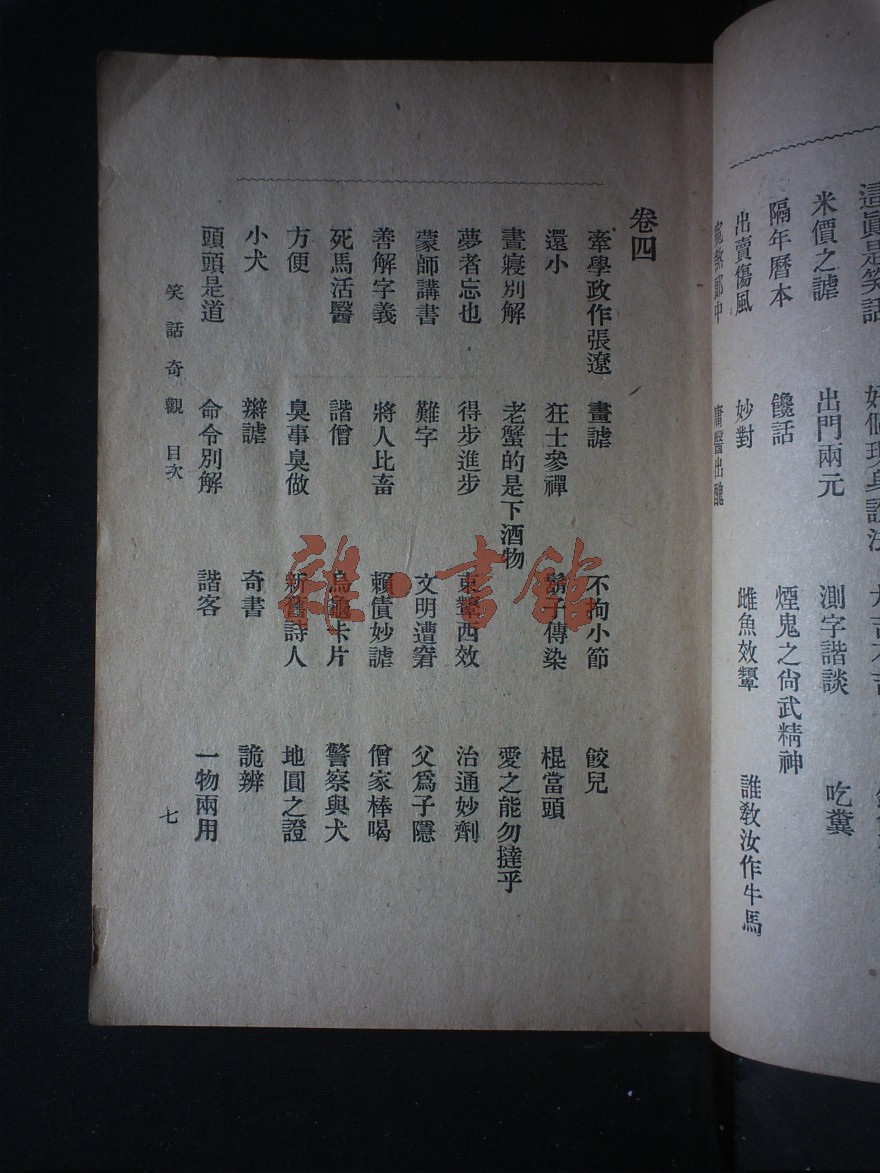 這眞是笑話
米價之謔 出門兩元 測字諧談 吃糞
隔年曆本 饞話 煙鬼之尙武精神
出賣傷風 妙對 雌魚效顰 誰敎汝作牛馬
庸醫出醜
卷四
牽學政作張遼 畫謔 不拘小節 餃兒
還小 狂士參禪 鬍子傳染 棍當頭
晝寢別解 老蟹的是下酒物 愛之能勿撻乎
夢者忘也 得步進步 東顰西效 治通妙劑
蒙師講書 難字 文明遭窘 父爲子隱
善解字義 將人比畜 賴債妙謔 僧家棒喝
死馬活醫 諧僧 烏龜卡片 警察與犬
方便 臭事臭做 新舊詩人 地圓之證
小犬 辯謔 奇書 詭辨
頭頭是道 命令別解 諧客 一物兩用
笑話奇觀 目次 七
雜·書館